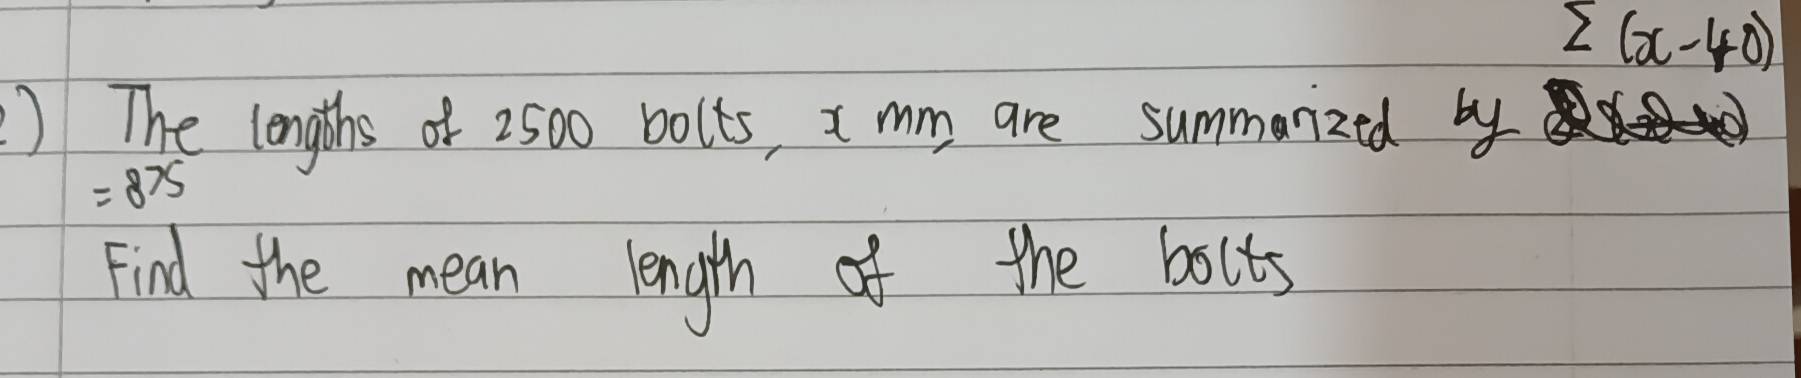 Σ (x-40)
2) The lengths of 2500 bolts, x mm, are summarized by
= 875
Find the mean length of the bolts